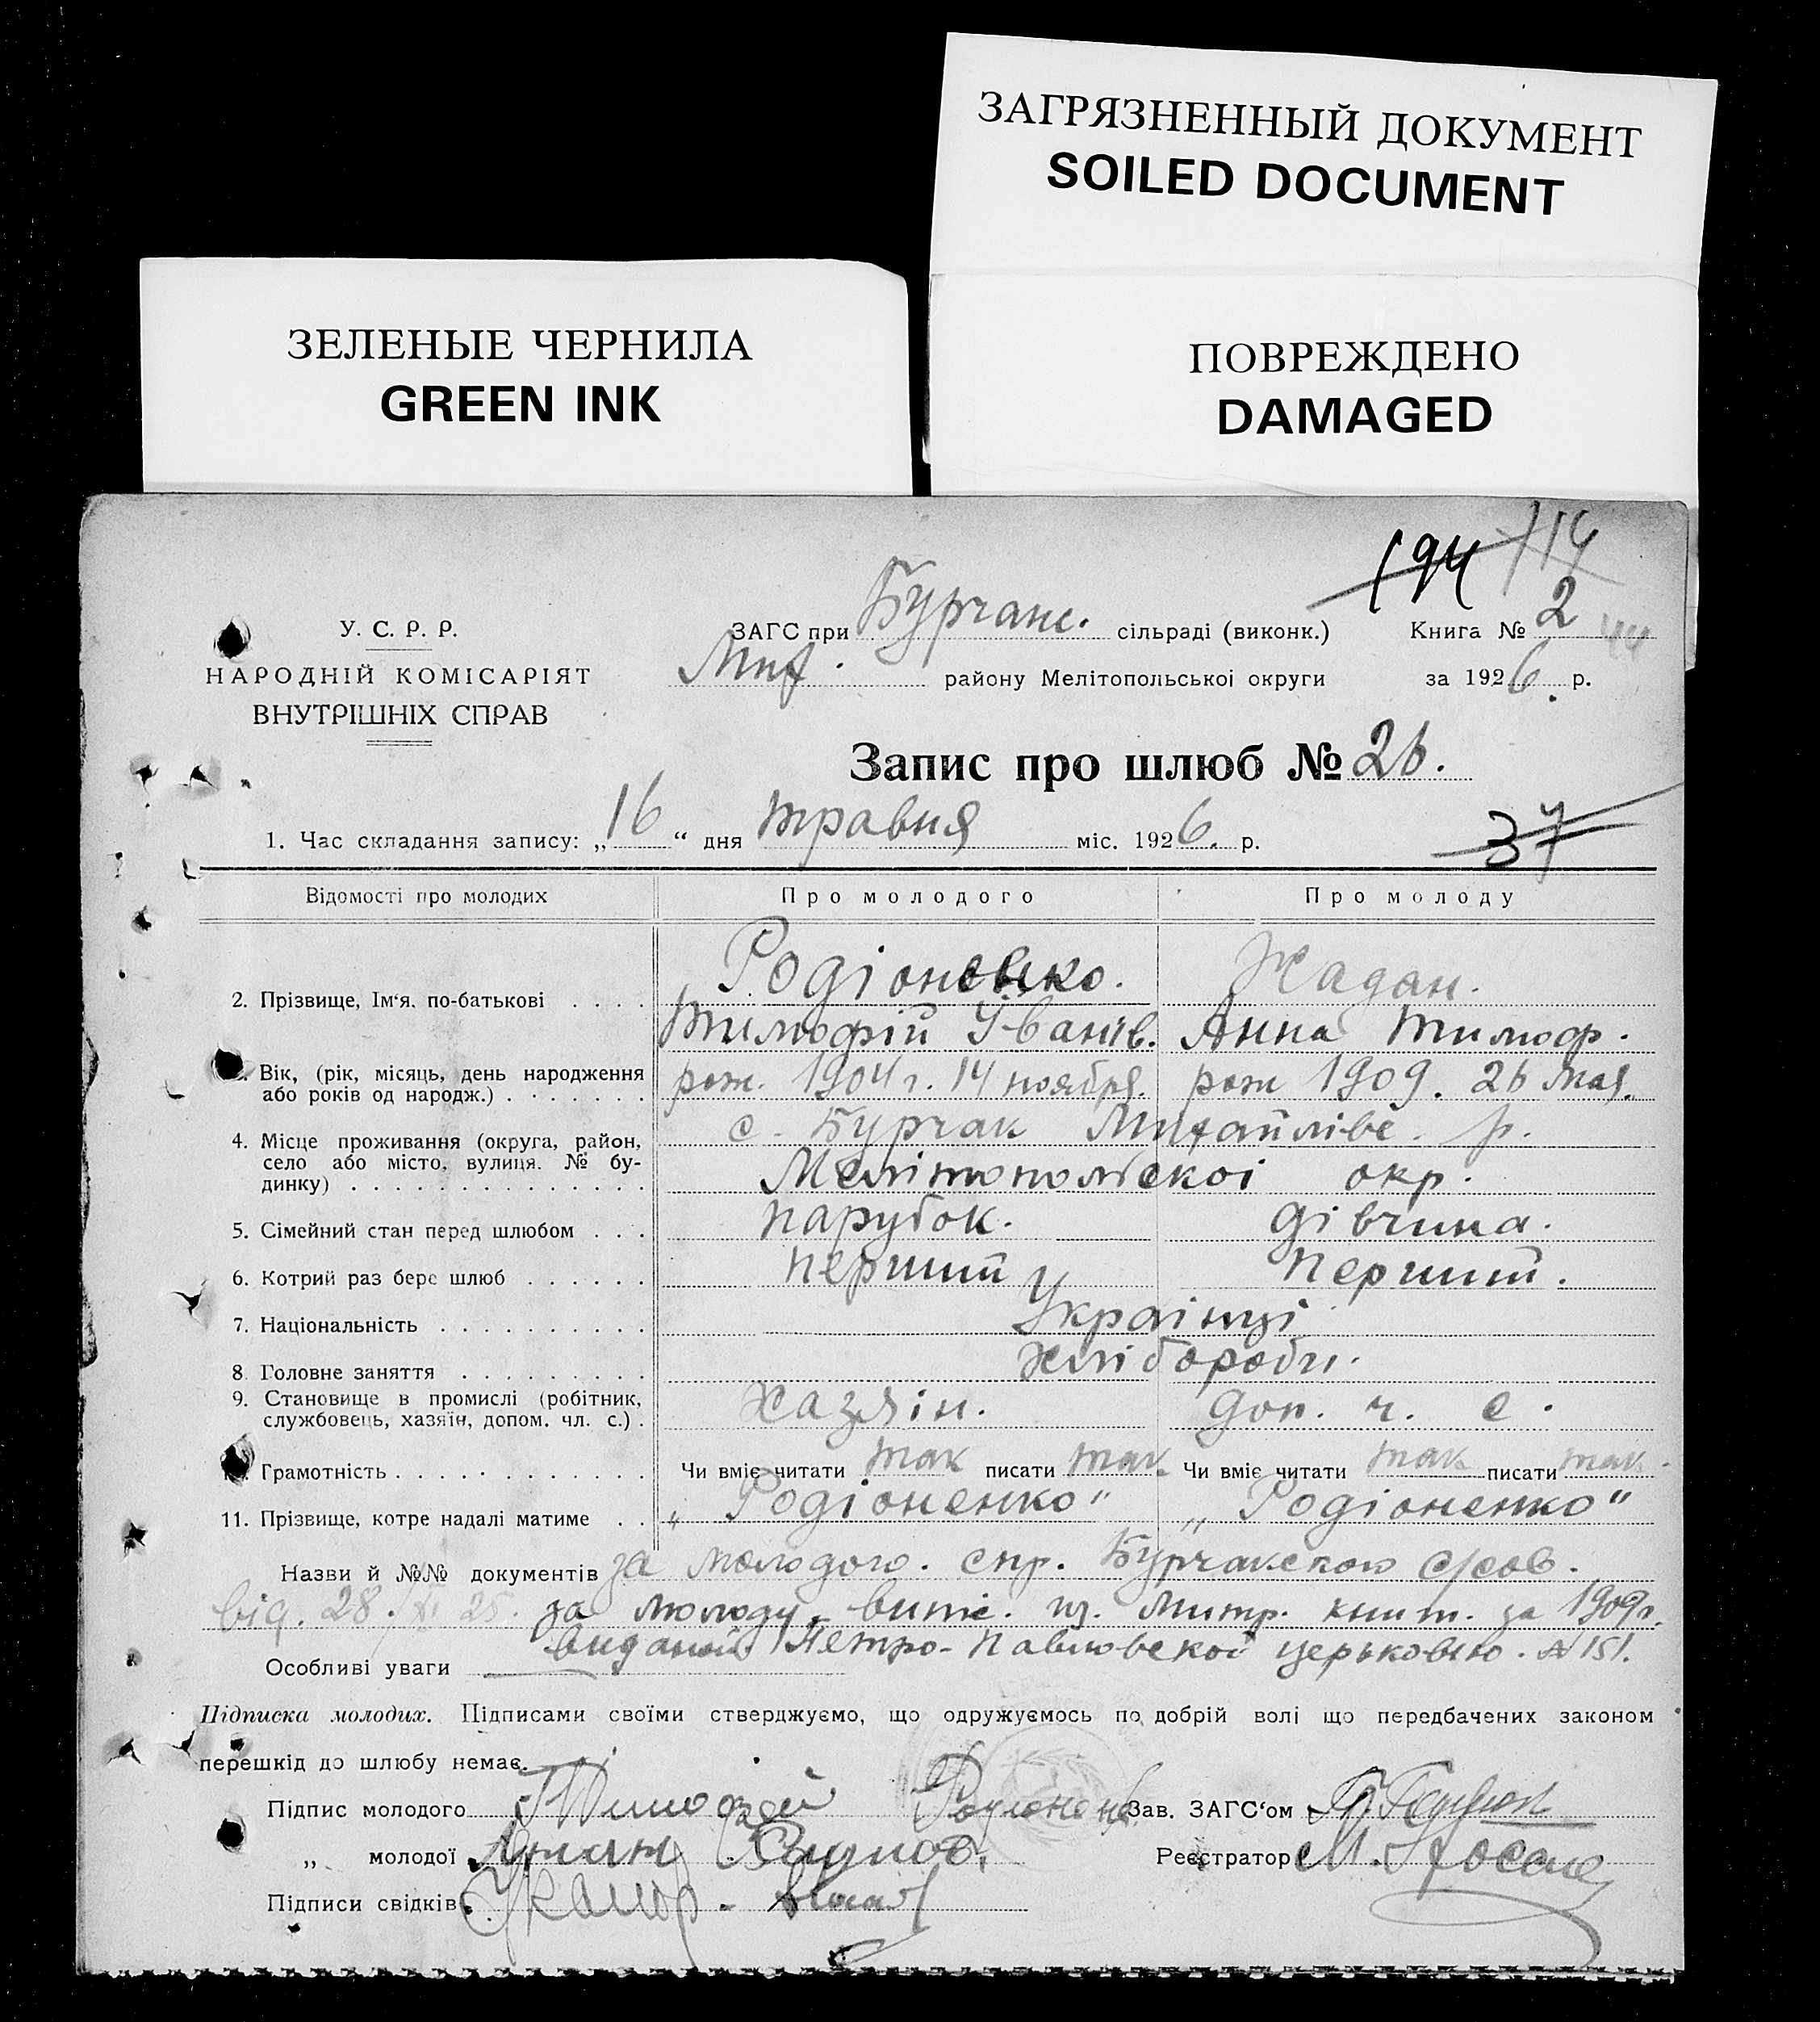 ЗАГРЯЗНЕННЫЙ ДОКУМЕНТ
SOILED DOCUMENT
ЗЕЛЕНЫЕ ЧЕРНИЛА
GREEN INK
ПОВРЕЖДЕНО
DAMAGED
194 114
У. С. Р. Р.
НАРОДНІЙ КОМІСАРІЯТ
ВНУТРІШНІХ СПРАВ
ЗАГС при Бурчанс. сільраді (виконк.) Книга № 2 44
Мих. району Мелітопольської округи за 1926. р.
Запис про шлюб № 26.
1. Час складання запису: „16“ дня травня міс. 1926. р. 37
Відомості про молодих Про молодого Про молоду
2. Прізвище, Ім‘я, по-батькові . . . . Родіоненко. Жадан.
Тимофій Іванів. Анна Тимоф.
Вік, (рік, місяць, день народження рож. 1904 г. 14 ноября. рож 1909. 26 мая.
або років од народж.) . . . . . . .
4. Місце проживання (округа, район, с. Бурчак Михайлівс. р.
село або місто, вулиця. № бу-
динку) . . . . . . . . . . . . . . Мелітопольскоі окр.
5. Сімейний стан перед шлюбом . . . парубок. дівчина.
6. Котрий раз бере шлюб . . . . . . перший перший.
7. Національність . . . . . . . . . . Украінці
8. Головне заняття . . . . . . . . . хлібороби.
9. Становище в промислі (робітник,
службовець, хазяїн, допом. чл. с.) . хазяін. доп. ч. с.
Грамотність . . . . . . . . . . . . Чи вміє читати так писати так Чи вміє читати так писати так.
11. Прізвище, котре надалі матиме . . „Родіоненко“ „Родіоненко“
Назви й №№ документів за молодого. спр. Бурчакскою с/сов.
від. 28. XI 25. за молоду, витс. из. митр. книт. за 1909 г.
виданой Петро-Павловскоі церьковью. № 151.
Особливі уваги
Підписка молодих. Підписами своїми стверджуємо, що одружуємось по добрій волі що передбачених законом
перешкід до шлюбу немає.
Підпис молодого Тимофей Родионенко Зав. ЗАГС‘ом
„ молодої Реєстратор
Підписи свідків